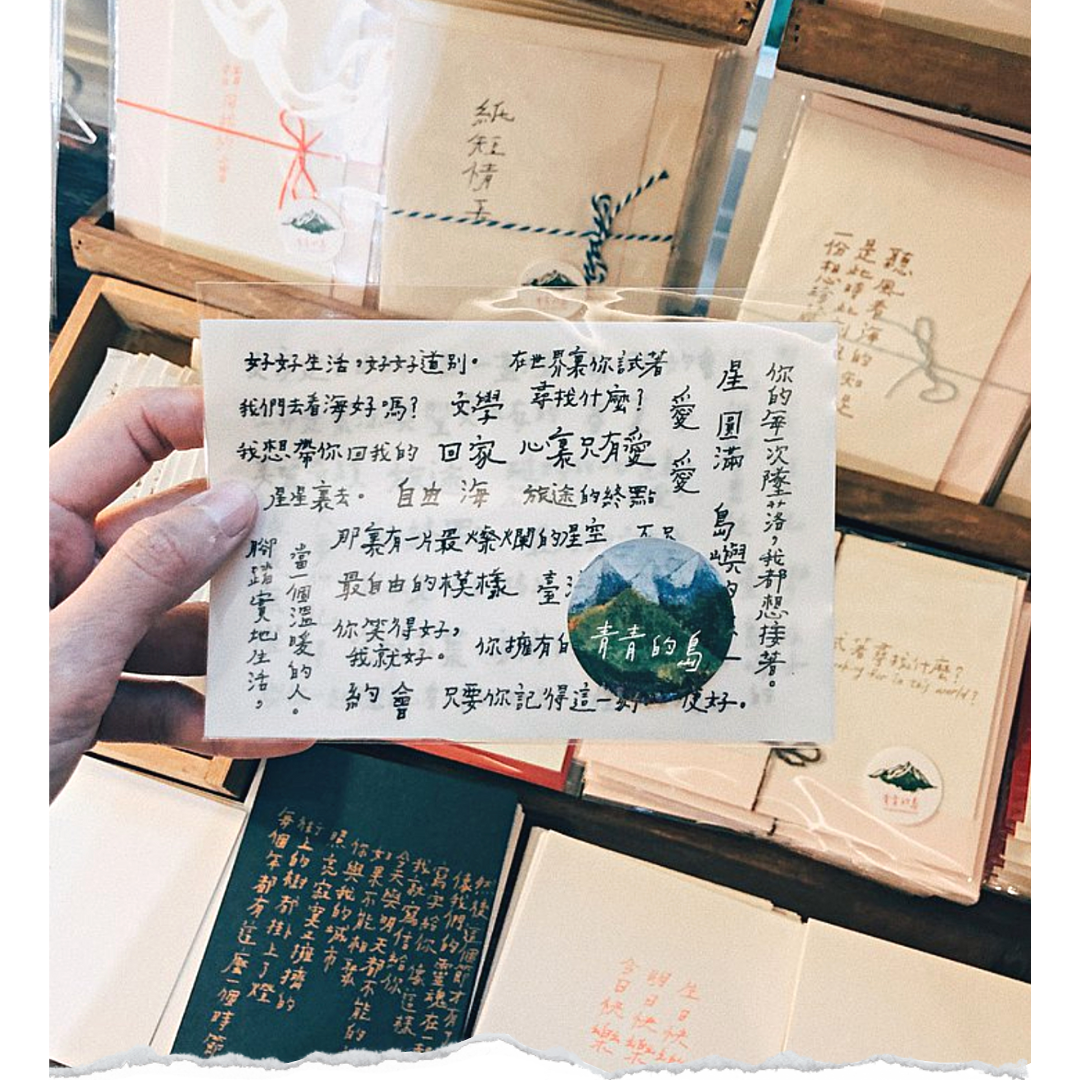 紙短情
聽風看海
是此時此刻的
一份想給你的知足
好好生活，好好道別。
在世界裏你試著
尋找什麼？
我們去看海好嗎？
文學
愛
愛
星
圓滿
島嶼的
你的每一次墜落，我都想接著。
我想帶你回我的
星星裏去。
回家
心裏只有愛
自由
海
旅途的終點
那裏有一片最燦爛的星空
腳踏實地生活，
當一個溫暖的人。
最自由的模樣
你笑得好，
我就好。
你擁有的
約會
只要你記得這一刻
便好。
青青的島
試著尋找什麼？
in this world?
然後這個節才有了
像我們的靈魂在一起
寫字給你像這樣
我就寫信給你
今天與明天都不能
如果不能相聚
你與我的城市
照亮寂寞又擁擠的
街上的樹都掛上了燈
每個年都有這麼一個時節
生日快樂
明日快樂
今日快樂